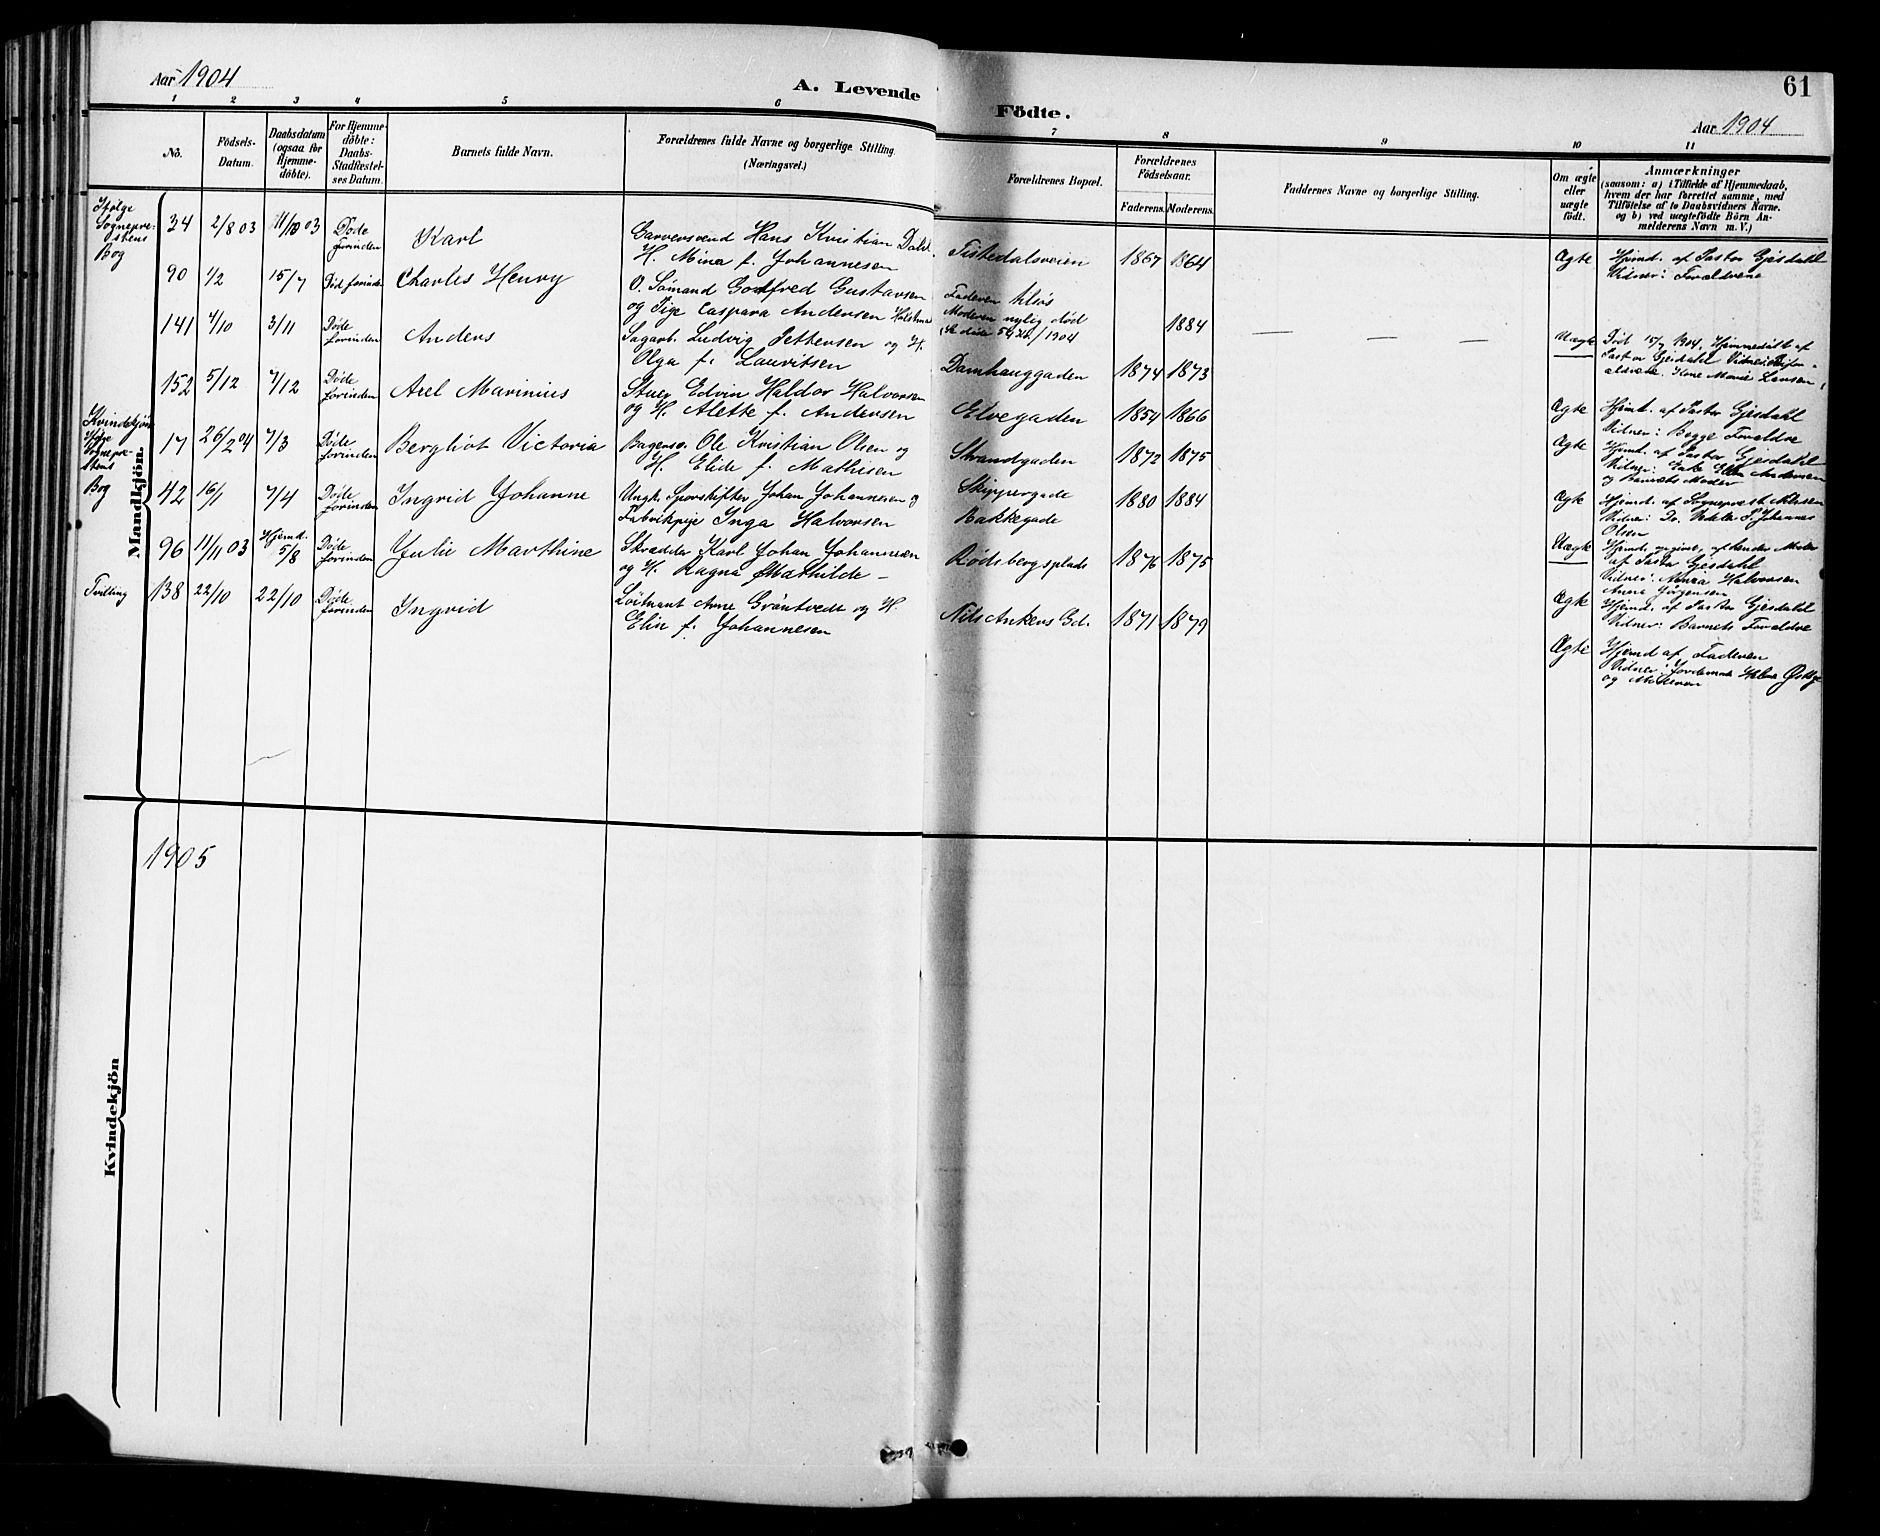 Aar 1904
A. Levende Födte.
61
Aar 1904
1 2 3 4 5 6 7 8 9 10 11
No.
Födsels-Datum.
Daabsdatum (ogsaa for Hjemme-döbte).
For Hjemme-döbte: Daabs-Stadfæstel-ses Datum.
Barnets fulde Navn.
Forældrenes fulde Navne og borgerlige Stilling. (Næringsvei.)
Forældrenes Bopæl.
Forældrenes Födselsaar.
Faderens. Moderens.
Faddernes Navne og borgerlige Stilling.
Om ægte eller uægte födt.
Anmærkninger
(saasom: a) i Tilfælde af Hjemmedaab,
hvem der har forrettet samme, med
Tilföielse af to Daabsvidners Navne.
og b) ved uægtefödte Börn An-
melderens Navn m. V.)
Ifølge
Sognepre-
stens
Bog
34 2/8 03 11/10 03 Døde forinden Karl
Garversvend Hans Kristian
H. Mina f. Johannesen
Tistedalsveien 1867 1864
Ægte
Hjemd. af Pastor Gjesdahl
Vidner: Forældrene
90 1/2 15/7 Død forinden Charles Henry
O. Sömand Godtfred Gustavsen
og Pige Caspara Andersen
Faderen
Moderen nylig död
1904
1884
Uægte
Död 15/7 1904. Hjemmedöbt af
Pastor Gjesdahl
Kone Marie Larsen
141 4/10 3/11 Døde forinden Anders
Sagarb. Ludvig Pettersen og H.
Olga f. Lauritsen
Damhauggaden 1874 1873
Ægte
Hjemt. af Pastor Gjesdahl
Vidner: Begge Forældre
152 5/12 7/12 Døde forinden Axel Marinius
Stuer Edvin Haldor Halvorsen
og H. Alette f. Andersen
Elvegaden 1854 1866
Ægte
Hjemt. af Pastor Gjesdahl
Vidner: Enke Andersen
og Barnets Moder
Kvindekjön
Ifølge
Sognepre-
stens
Bog
17 26/2 04 7/3 Døde forinden Bergliot Victoria
Bagersv. Ole Kristian Olsen og
H. Elide f. Mathisen
Strandgaden 1872 1875
Ægte
Hjemd. af Sogneprest
Vidner: Johannes
Olsen
42 16/1 7/4 Døde forinden Ingrid Johanne
Ungk. Sporskifter Johan Johannesen og
Fabrikpige Inga Halvorsen
Skippergade
Bakkegade
1880 1884
Uægte
Hjemd. af Pastor Gjesdahl
Vidner: Halvorsen
Anne Jörgensen
96 11/11 03 Hjemd. 5/8 Døde forinden Julie Marthine
Skrædder Karl Johan Johannesen
og H. Ragna Mathilde –
Rødsbergsplads 1876 1875
Ægte
Hjemd. af Pastor Gjesdahl
Vidner: Barnets Forældre
Tvilling 138 22/10 22/10 Døde forinden Ingrid
Löitnant Arne Gröntvedt og H.
Elin f. Johannesen
Nils Ankers Gd. 1871 1879
Ægte
Hjemd af Faderen
Vidner: Jordemor
og Moderen
Mandkjön.
1905
Kvindekjön